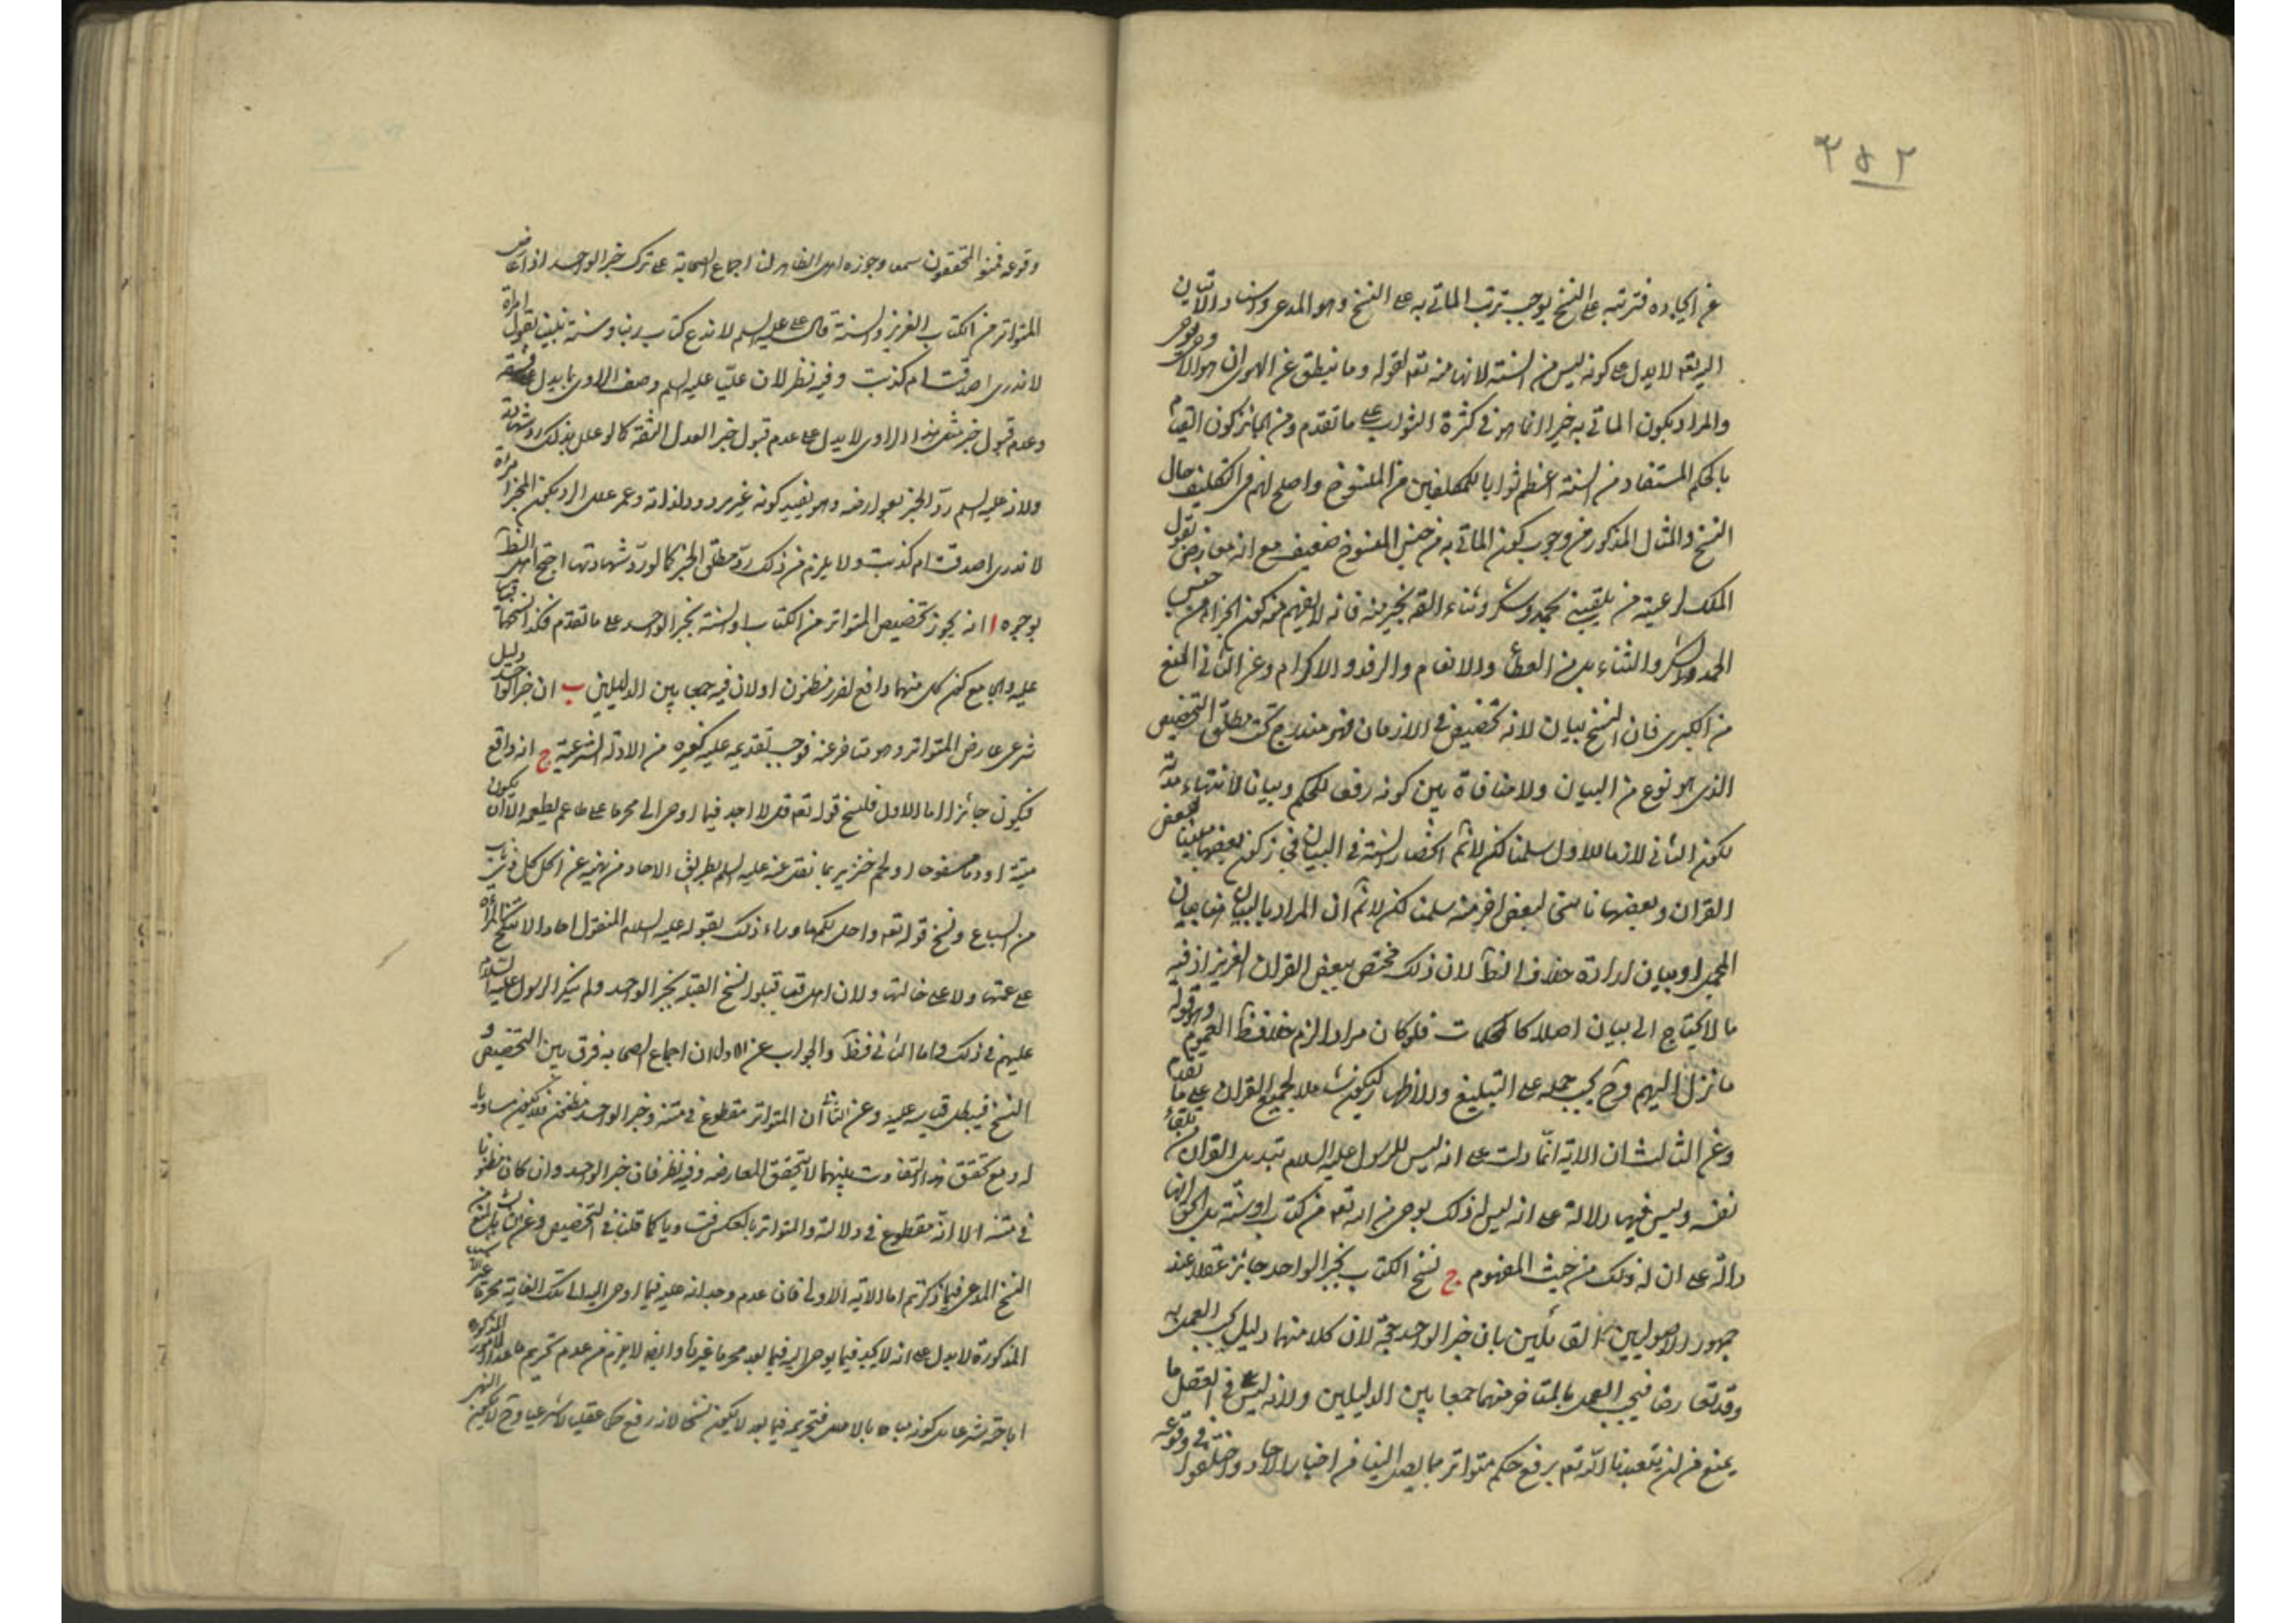 ٢٥٢
عن ايجاده فترتبه على النسخ يوجب ترتب الماتى به على النسخ وهو المدعى واسناد الاتيان
اليه تعه لا يدل على كونه ليس من السنة لانها منه تعه لقوله وما ينطق عن الهوى ان هو الا وحى يوحى
والمراد بكون الماتى به خيرا انما هو فى كثرة الثواب على ما تقدم ومن الجائز كون القيام
بالحكم المستفاد من السنة اعظم ثوابا للمكلفين من المنسوخ واصلح لهم فى التكليف حال
النسخ والمثال المذكور من وجوب كون الماتى به من جنس المنسوخ ضعيف مع انه معارض بقول
الملك لرعيته من يلقينى بحمد وشكر وثناء القه بخير منه فانه لا يفهم منه كون الجزاء من جنس
الحمد والشكر والثناء بل من العطاء والانعام والرفد والاكرام وعن الثانى المنع
من الكبرى فان النسخ بيان لانه تخصيص فى الازمان فهو مندرج تحت مطلق التخصيص
الذى هو نوع من البيان ولا منافاة بين كونه رفعا للحكم وبيانا لانتهاء مدته
لكون الثانى لازما للاول سلمنا لكن لا نم انحصار السنة فى البيان فجاز كون بعضها مبينا لبعض
القران وبعضها ناسخا لبعض اخر منه سلمنا لكن لا نم ان المراد بالبيان ههنا بيان
المجمل او بيان ارادة خلاف الظ لان ذلك مختص ببعض القران العزيز اذ فيه
ما لا يحتاج الى بيان اصلا كالمحكمات فلو كان مرادا لزم خلاف ظ العموم وهو قوله
ما نزل اليهم وح يجب حمله على التبليغ والاظهار ليكون شاملا لجميع القران على ما تقدم
وعن الثالث ان الاية انما دلت على انه ليس للرسول عليه السلام تبديل القران من تلقاء
نفسه وليس فيها دلالة على انه ليس له ذلك بوحى من الله تعه من كتاب او سنة بل الحق انها
دالة على ان له ذلك من حيث المفهوم ج نسخ الكتاب بخبر الواحد جائز عقلا عند
جمهور الاصوليين القائلين بان خبر الواحد حجة لان كلا منهما دليل يجب العمل به
وقد تعارضا فيجب العمل بالمتاخر منهما جمعا بين الدليلين ولانه ليس فى العقل ما
يمنع من ان يتعبدنا الله تعه برفع حكم متواتر بما يصل الينا من اخبار الاحاد واختلفوا فى وقوعه
وقوعه فمنع المحققون سمعا وجوزه اهل الظاهر لنا اجماع الصحابة على ترك خبر الواحد اذا عارض
المتواتر من الكتاب العزيز والسنة قال على عليه السلم لا ندع كتاب ربنا وسنة نبينا بقول امراة
لا ندرى اصدقت ام كذبت وفيه نظر لان عليا عليه السلم وصف الراوى بما يدل على فسقه
وعدم قبول خبر مثل هذا الراوى لا يدل على عدم قبول خبر العدل الثقة كما لو علل بذلك رد شهادته
ولانه عليه السلم رد الخبر بعوارضه وهو يفيد كونه غير مردود لذاته وعمر علل الرد بكون المخبر امراة
لا ندرى اصدقت ام كذبت ولا يلزم من ذلك رد مطلق الخبر كما لو رد شهادتها احتج اهل الظ
بوجوه ا انه يجوز تخصيص المتواتر من الكتاب والسنة بخبر الواحد على ما تقدم فكذا نسخهما قياسا
عليه والجامع كون كل منهما دافع لضرر مظنون او لان فيه جمعا بين الدليلين ب ان خبر الواحد دليل
شرعى عارض المتواتر وهو متاخر عنه فوجب تقديمه عليه كغيره من الادلة الشرعية ج انه واقع
فيكون جائزا اما الاول فلنسخ قوله تعه قل لا اجد فيما اوحى الى محرما على طاعم يطعمه الا ان يكون
ميتة او دما مسفوحا او لحم خنزير بما نقل عنه عليه السلم بطريق الاحاد من نهيه عن اكل كل ذى ناب
من السباع ونسخ قوله تعه واحل لكم ما وراء ذلك بقوله عليه السلام المنقول احادا لا تنكح المراة
على عمتها ولا على خالتها ولان اهل قبا قبلوا نسخ القبلة بخبر الواحد ولم ينكر الرسول عليه السلام
عليهم فى ذلك واما الثانى فظ والجواب عن الاول ان اجماع الصحابه فرق بين التخصيص و
النسخ فيبطل قياسه عليه وعن الثانى ان المتواتر مقطوع فى متنه وخبر الواحد مظنون فلا يكون مساويا
له ومع تحقق هذا التفاوت بينهما لا يتحقق المعارضه وفيه نظر فان خبر الواحد وان كان مظنونا
فى متنه الا انه مقطوع فى دلالته والمتواتر بالعكس فتساويا كما قلنا فى التخصيص وعن الثالث بالمنع من
النسخ المدعى فيما ذكرتم اما الاية الاولى فان عدم وجدانه عليه فيما اوحى اليه الى تلك الغاية محرما غير
المذكورة لا يدل على انه لا يجد فيما يوحى اليه فيما بعد محرما غيرها وايضا لا يلزم من عدم تحريم ما عدا الامور المذكوره
اباحته شرعا بل كونه مباحا بالاصل فتحريمه فيما بعد لا يكون نسخا لانه رفع حكم عقلى لا شرعى وح لا يكون النهى